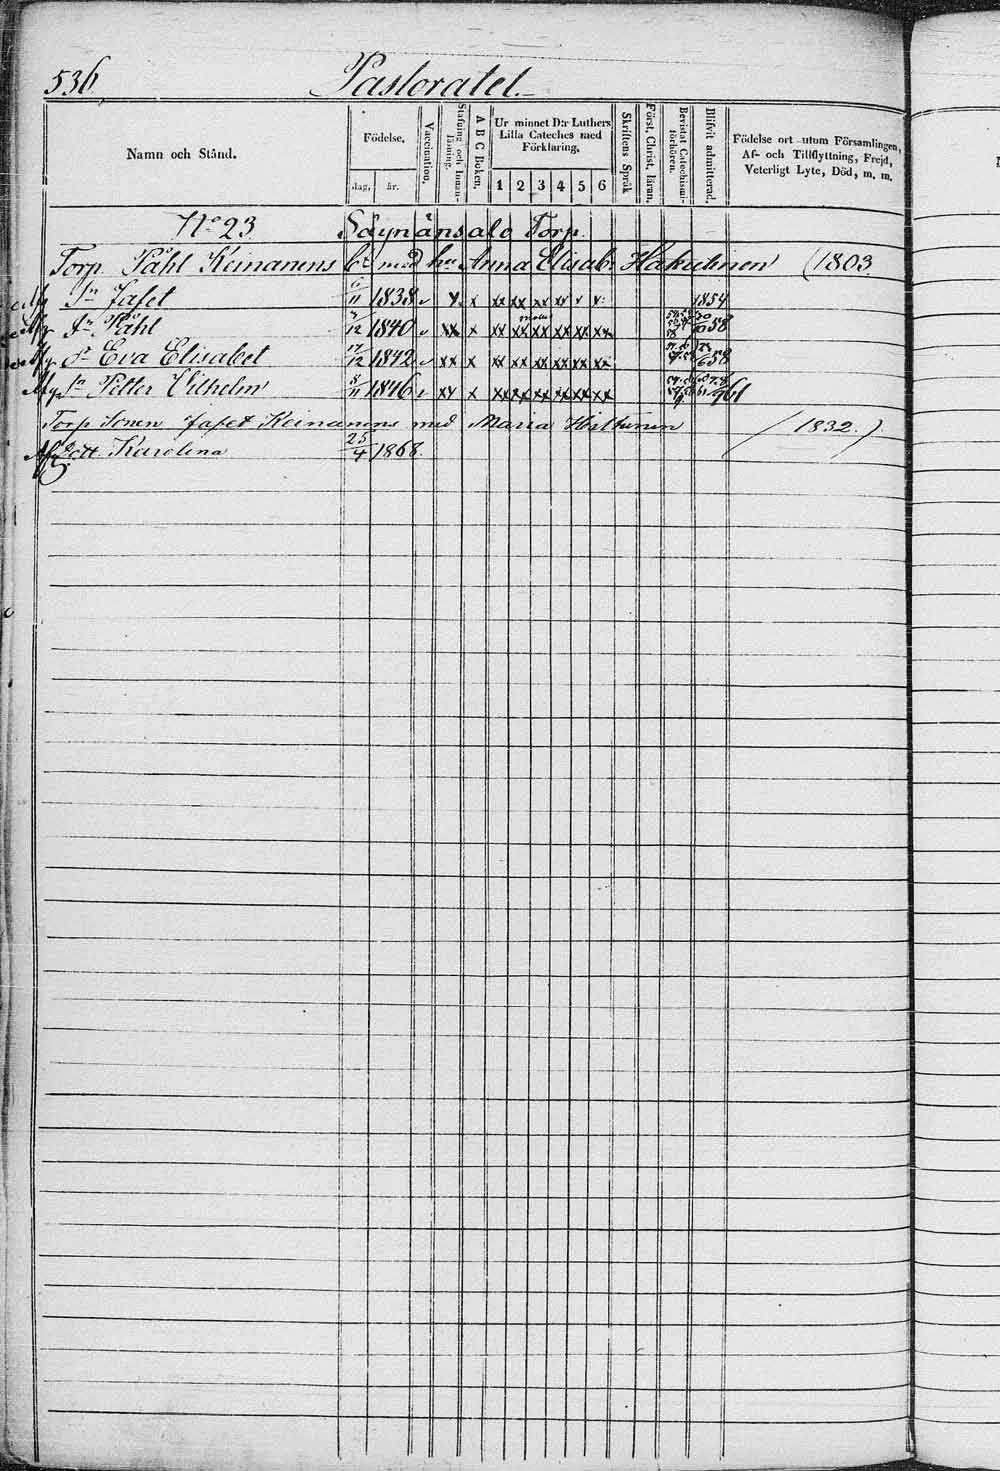 536. Pastoratet.
Namn och Stånd. Födelse. Vaccination. Stafning och Innan-läsning. A B C Boken. Ur minnet D:r Luthers Lilla Cateches med Förklaring. Skriftens Språk Först. Christ. läran. Bevistat Catechismi-förhören. Blifvit admitterad. Födelse ort utom Församlingen, Af- och Tillflyttning, Frejd, Veterligt Lyte, Död, m. m.
dag. år. 1 2 3 4 5 6
No 23 Säynänsalo Torp.
Torp. Påhl Keinanens med hu Anna Elisab. Hakulinen (1803
Sn Jafet 6/11 1838 x x xx xx xx xx x x 1854
Sn Påhl 12 1840 xx x xx xx xx xx xx xx 58
Dr Eva Elisabet 17/12 1842 xx x xx xx xx xx xx xx 58
Sn Petter Vilhelm 5/11 1846 xx x xx xx xx xx xx xx 61
Torp Sonen Jafet Keinanens med Maria Hiltunen (1832.)
Dott. Karolina 25/4 1868.